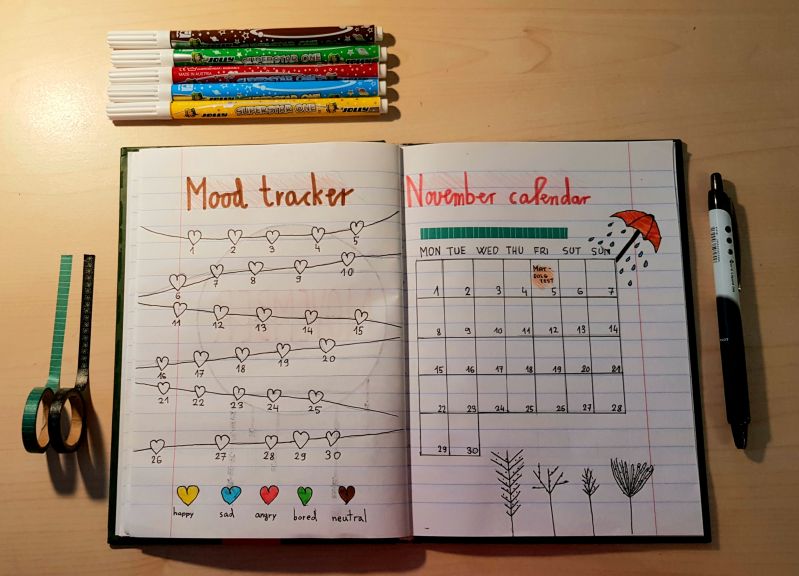 SUPERSTAR ONE
MADE IN AUSTRIA
JOLLY SUPERSTAR ONE JOLLY
Mood tracker
1 2 3 4 5
6 7 8 9 10
11 12 13 14 15
16 17 18 19 20
21 22 23 24 25
26 27 28 29 30
happy sad angry bored neutral
November calendar
MON TUE WED THU FRI SUT SUN
MAT-
TEST
1 2 3 4 5 6 7
8 9 10 11 12 13 14
15 16 17 18 19 20 21
22 23 24 25 26 27 28
29 30